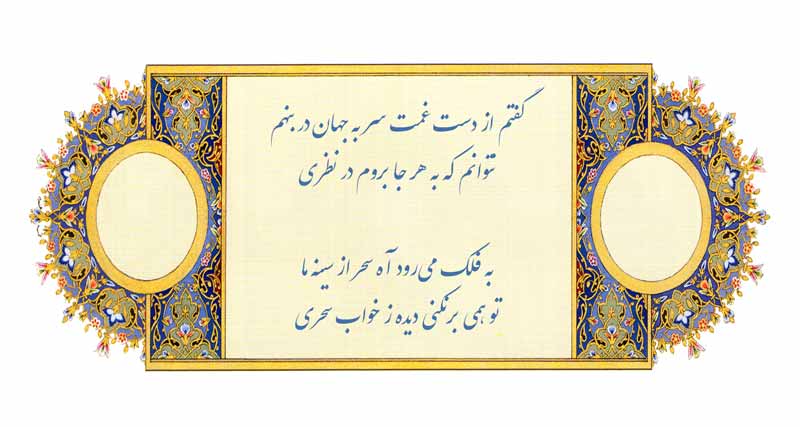 گفتم از دست غمت سر به جهان در بنهم
نتوانم که به هر جا بروم در نظری
به فلک می‌رود آه سحر از سینه ما
تو همی برنکنی دیده ز خواب سحری